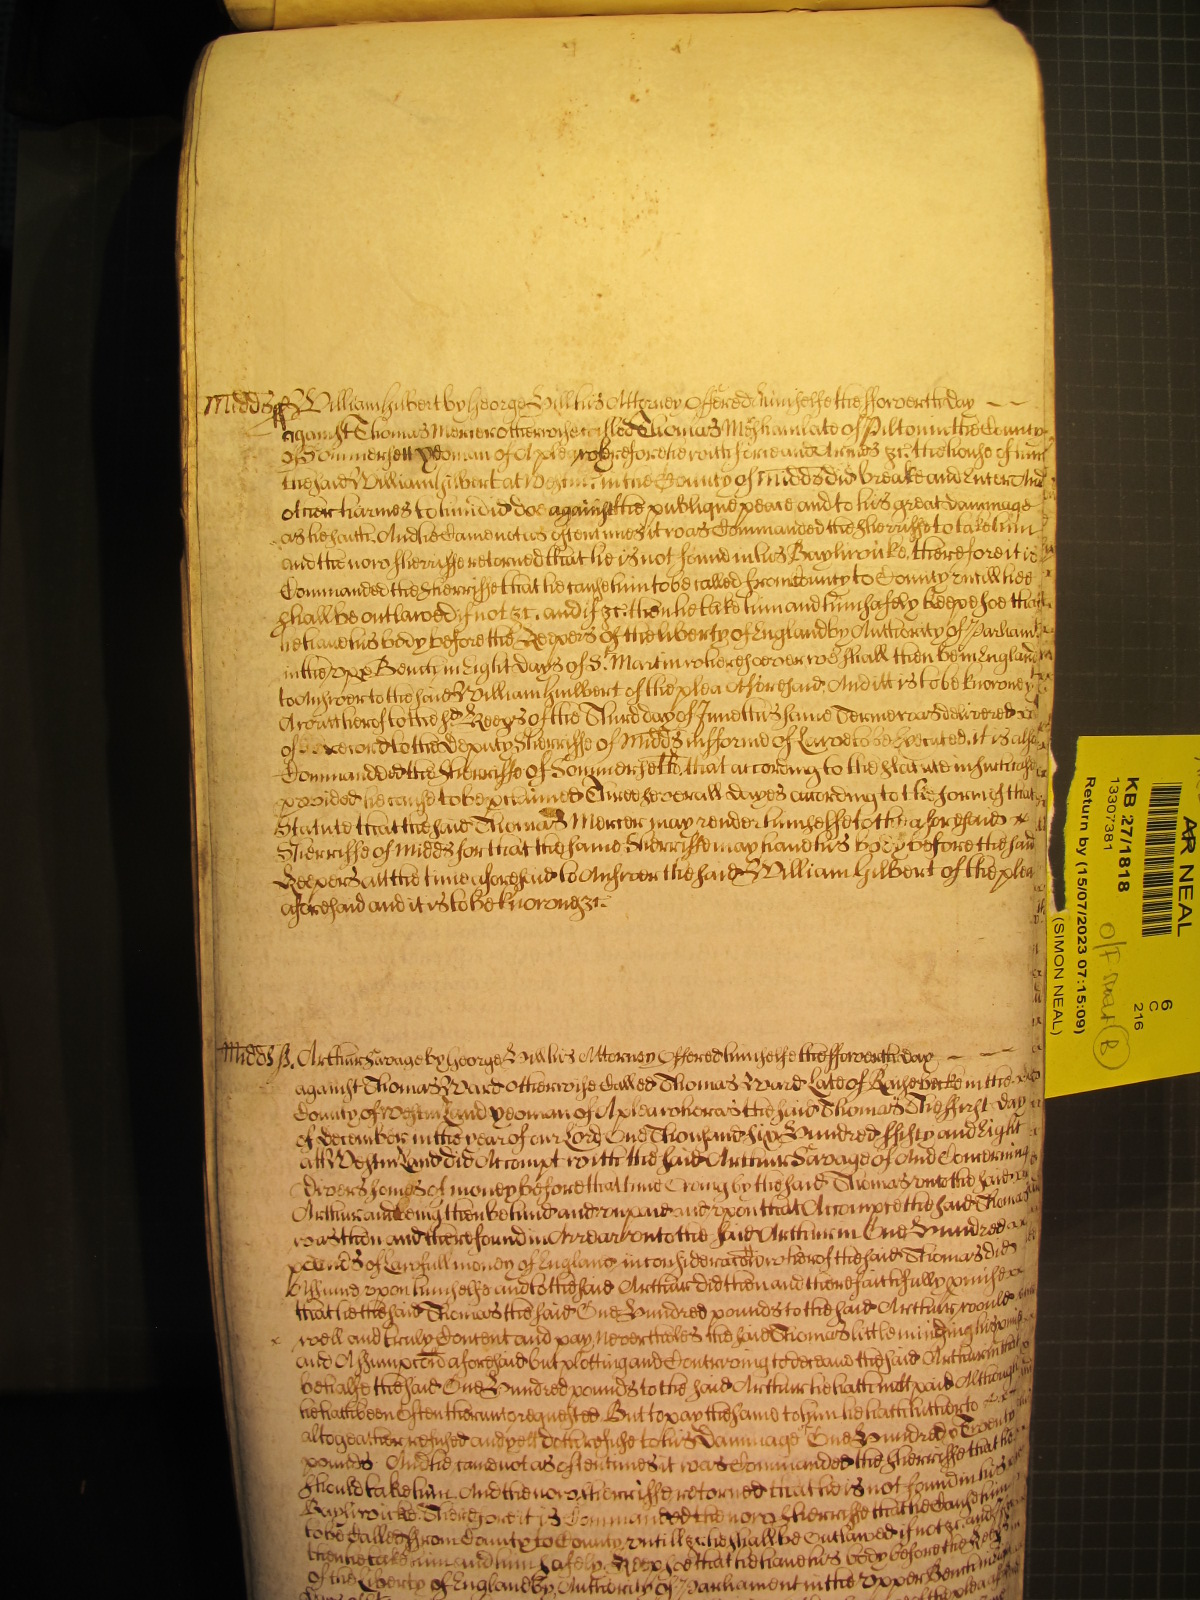 Midds ss William Gilbert by George Hill his Attorney Offered himselfe the ffowerth day
against Thomas Mercer otherwise called Thomas late of Pilton in the County
of Sommersett Yeoman of A plea wherefore he with force and Armes &c. the house of him
the said William Gilbert at Westm. in the County of Midds did breake and Enter And
other harmes to him did doe against the publique peace and to his great Dammage
as he saith. And he Came not as oftentimes it was Commanded the Sherriffe to take him
and the now Sherriffe returned that he is not found in his Bayliwicke. therefore it is
Commanded the Sherriffe that he cause him to be called from County to County untill hee
shall be outlawed if not &c. and if &c. then he take him and him safely keepe soe that
he have his body before the Keepers of the liberty of England by Authority of Parliam
in the Upp Bench in Eight days of St. Martin wheresoever we shall then be in England
to Answer to the said William Gilbert of the plea Aforesaid. And itt is to be knowne
A writt thereof to the sd Keeps of the Third day of June this same Terme was delivered
of Record to the deputy Sherriffe of Midds in fforme of Law to be Executed. it is alsoe
Commanded the Sherriffe of Sommersett that according to the Statute in such case
provided he cause to be pclaimed Three severall dayes according to the forme of that
Statute that the said Thomas Mercer may render himselfe to the aforesaid
Sherriffe of Midds for that the same Sherriffe may have his body before the said
Keepers att the time aforesaid to Answer the said William Gilbert of the plea
aforesaid and it is to be knowne &c.
Midds ss. Arthur Savage by George Hill his Attorney Offered himselfe the ffowerth day
against Thomas Ward otherwise Called Thomas Ward Late of in the
County of Westm Land yeoman of A plea wheras the said Thomas The first day
of December in the year of our Lord One Thousand Six Hundred ffifty and Eight
att Westm Land did Accompt with the said Arthur Savage of And Concerning
divers somes of money before that time Owing by the said Thomas unto the said
Arthur and being then behind and unpaid and upon that Accompt the said Thomas
was then and there found in Arrear unto the said Arthur in One Hundred
pounds of Lawfull money of England in consideracon wherof the said Thomas did
Assume upon himselfe and to the said Arthur did then and there faithfully pmise
that he the said Thomas the said One Hundred pounds to the said Arthur would
well and truly Content and pay Neverthelesse the said Thomas little minding his pmise
and Assumpcon aforesaid but plotting and Contriving to deceave the said Arthur in that
behalfe the said One Hundred pounds to the said Arthur he hath nott paid Although
he hath been Often thereunto requested But to pay the same to him he hath hitherto
altogeather refused and yett doth refuse to his Dammage One Hundred & Twenty
pounds. And he came not as oftentimes it was Commanded the Sherriffe that he
should take him. And the now Sherriffe returned that he is not found in his
Bayliwicke. Therefore it is Commanded the now Sherriffe that he Cause him
to be Called from County to County untill &c. he shall be Outlawed if not &c. and if
then he take him and him safely. Keep soe that he have his body before the Keeps
of the Liberty of England by Authority of Parliament in the Upper Bench
AR NEAL
KB 27/1818
13307381
Return by (15/07/2023 07:15:09)
(SIMON NEAL)
6
C
216
B